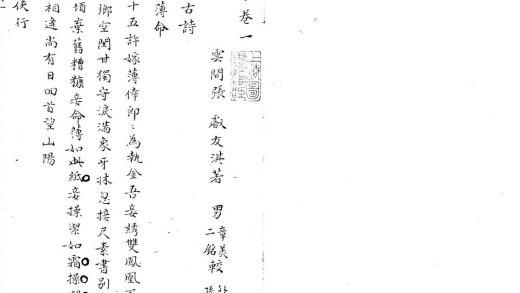 卷一
雲間張 友淇著 男章美 二銘較
古詩
薄命
十五許嫁薄倖郎郎為執金吾妾綉雙鳳凰
鄉空閨甘獨守淚滿象牙牀忽接尺素書別
頃棄舊糟糠妾命薄如此紙妾操潔如霜操
相逢尚有日回首望山陽
俠行